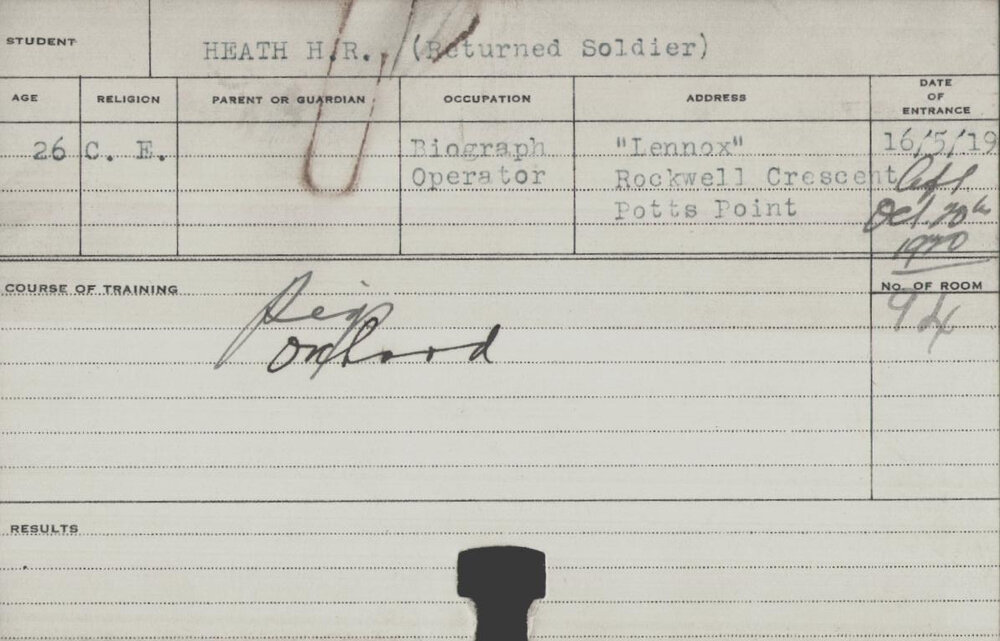 STUDENT HEATH H.R., (Returned Soldier)
AGE RELIGION PARENT OR GUARDIAN OCCUPATION ADDRESS DATE OF ENTRANCE
26 C. E. Biograph "Lennox" 16/5/19
Operator Rockwell Crescent
Potts Point Oct. 20th
1920
COURSE OF TRAINING No. OF ROOM
94
on board
RESULTS